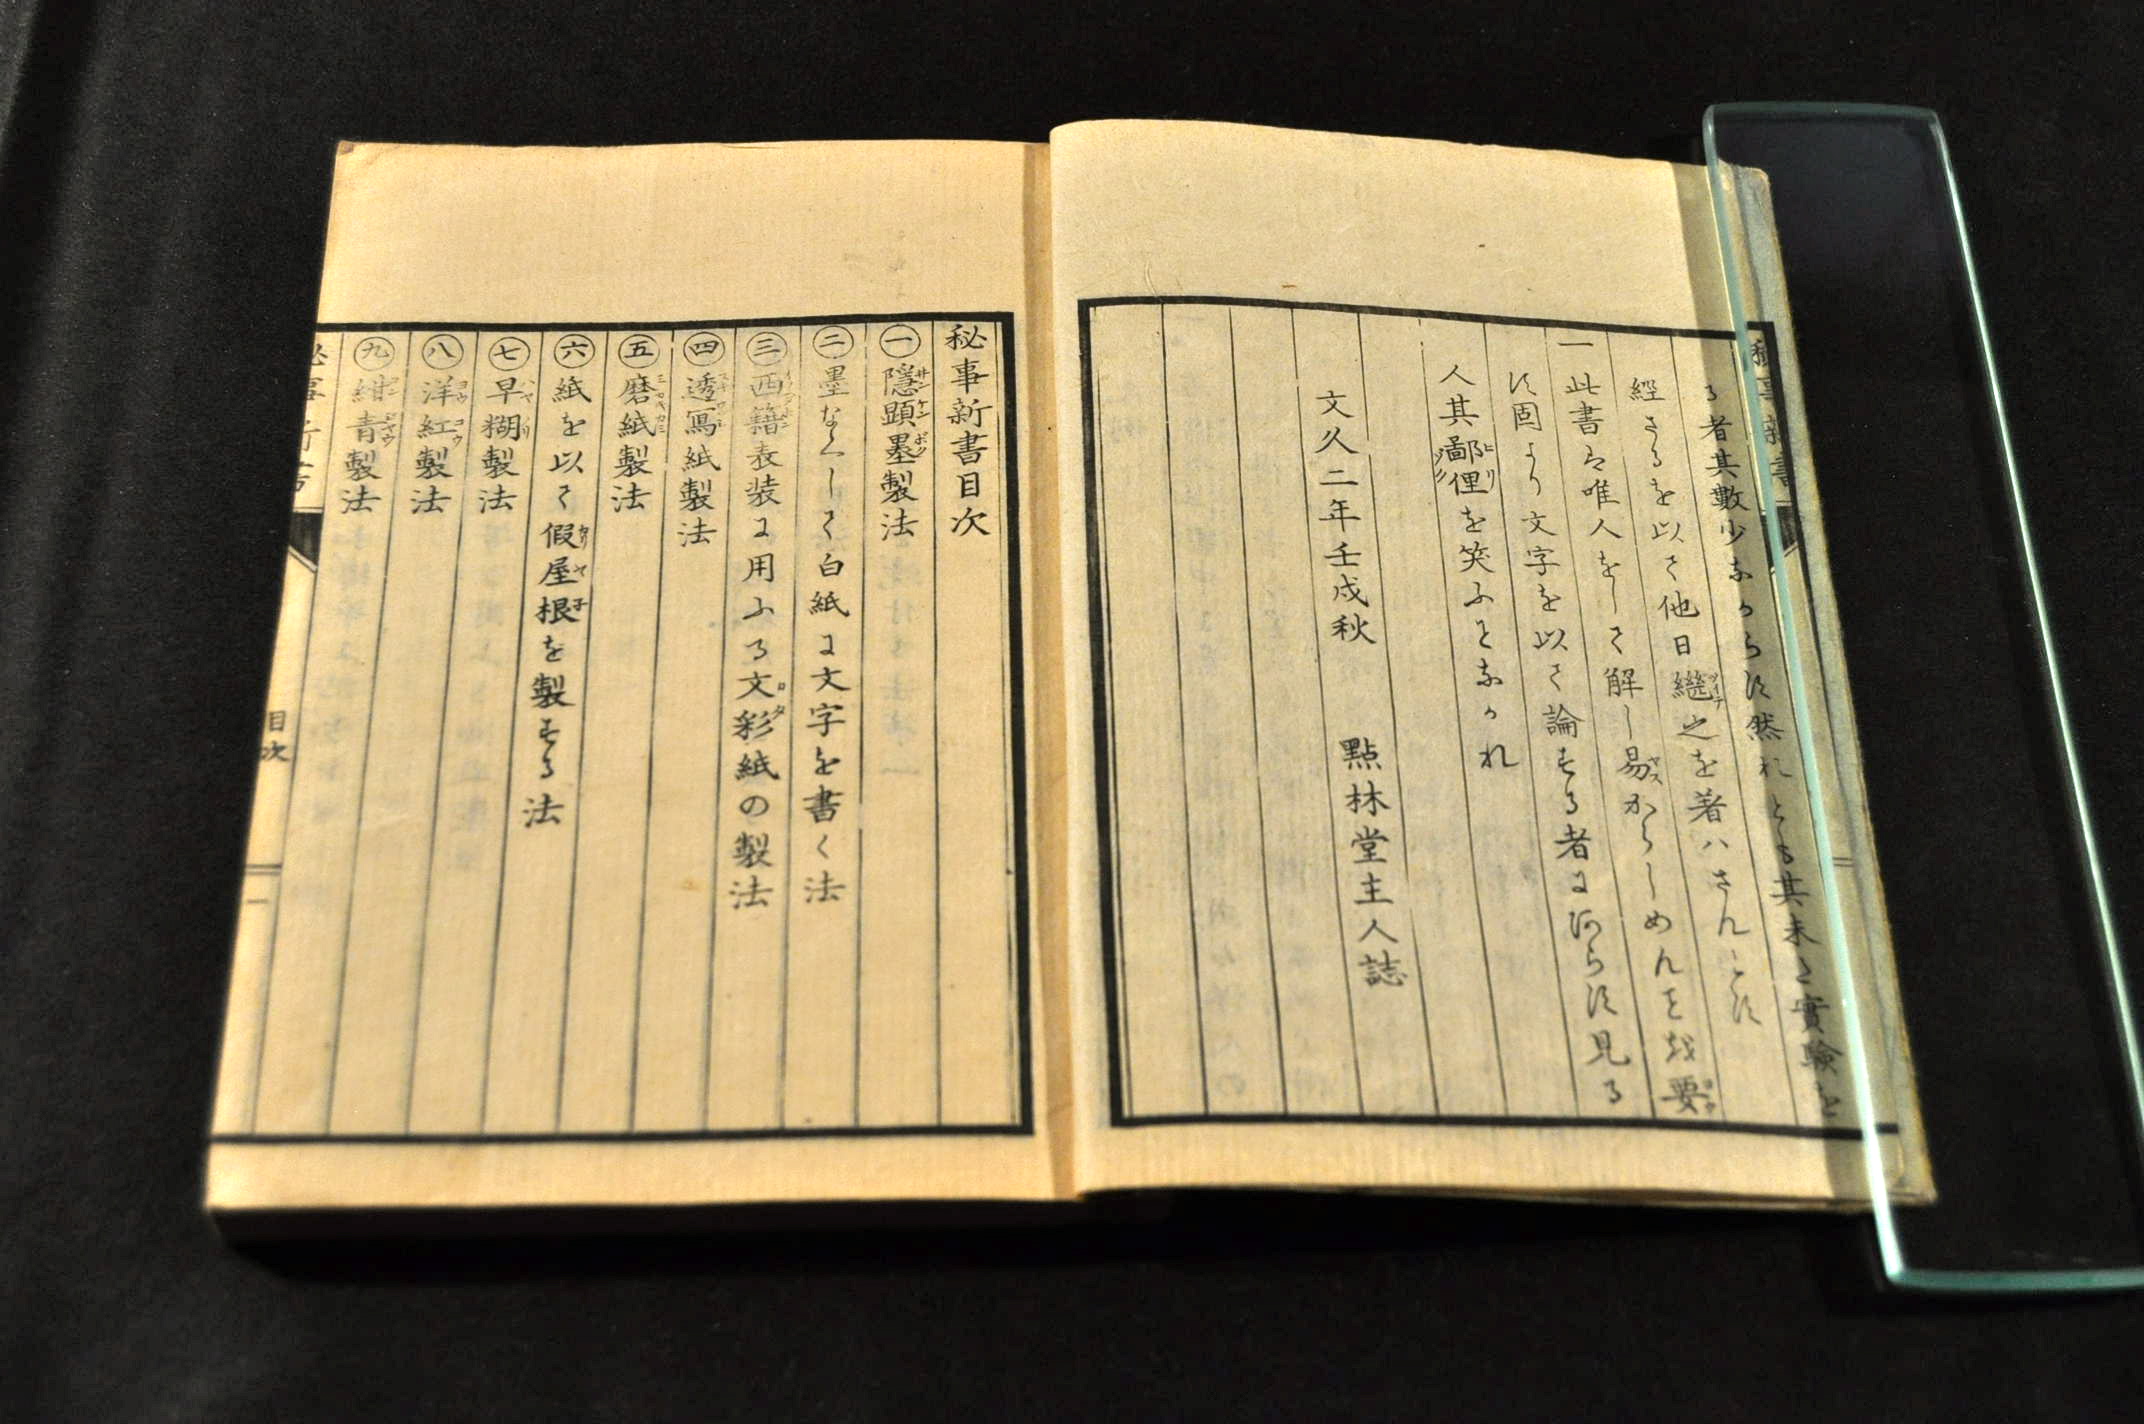 る者其數少なからす然れとも其未た實驗を
經さるを以て他日繼之を著ハさんとす
一此書ハ唯人をして解し易からしめんを要
す固より文字を以て論する者にあらす見る
人其鄙俚を笑ふとなかれ
文久二年壬戌秋　點林堂主人誌
秘事新書目次
㊀隱顯墨製法
㊁墨なくして白紙に文字を書く法
㊂西籍表装に用ふる文彩紙の製法
㊃透寫紙製法
㊄磨紙製法
㊅紙を以て假屋根を製する法
㊆早糊製法
㊇洋紅製法
㊈紺青製法
目次
一